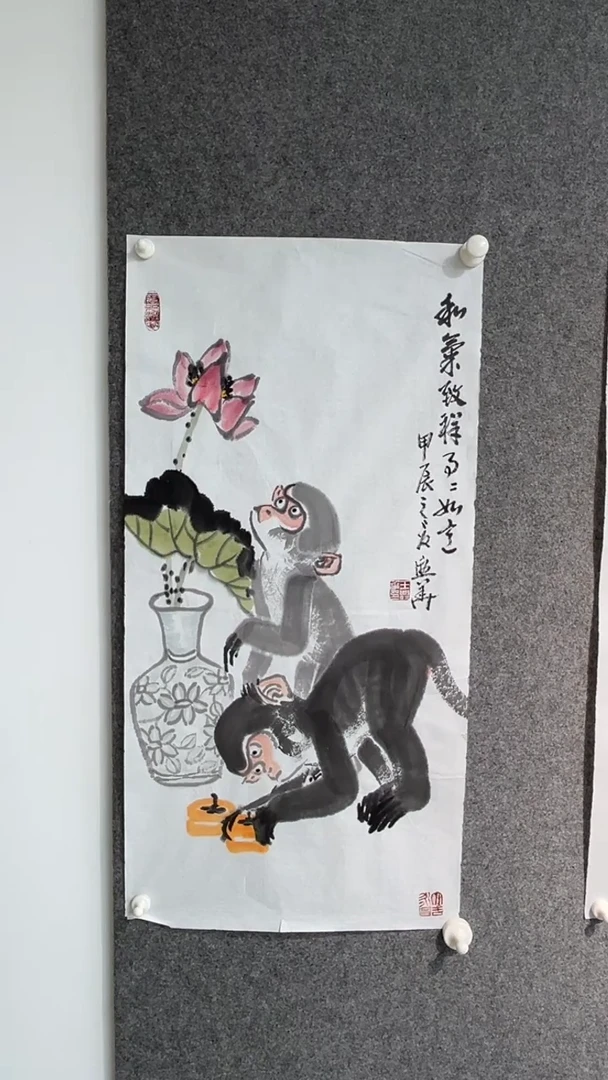 和氣致祥事〻如意
甲辰之夏